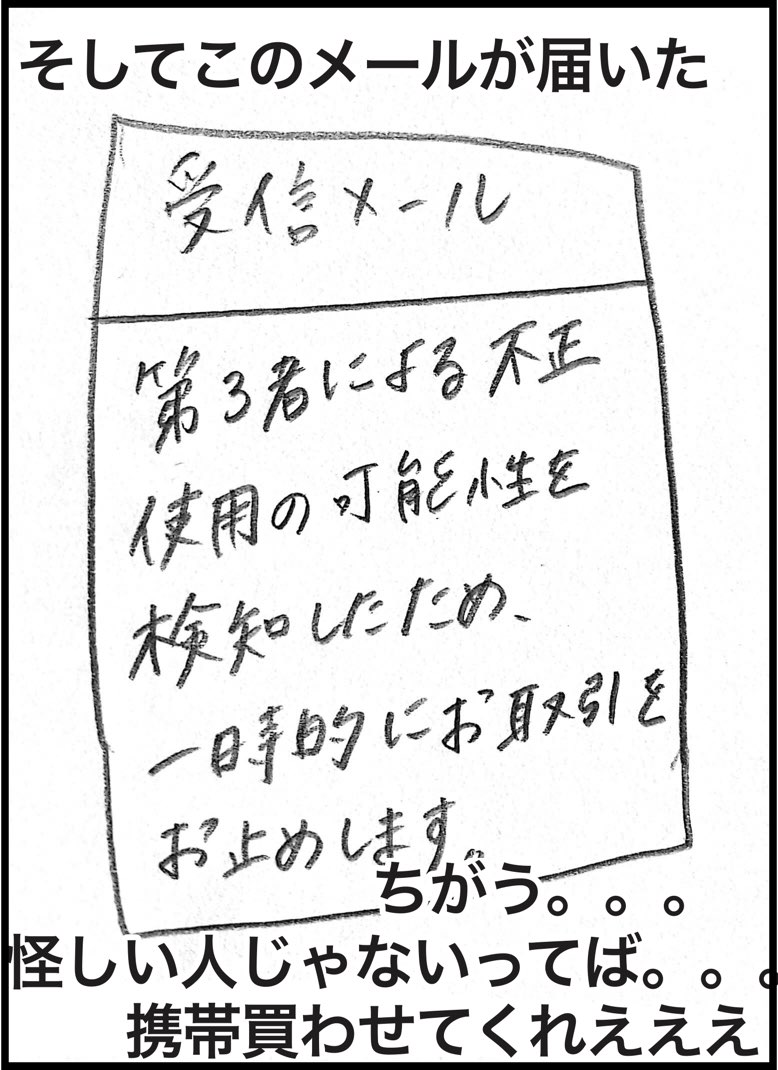 そしてこのメールが届いた
受信メール
第3者による不正
使用の可能性を
検知したため、
一時的にお取引を
お止めします。
ちがう。。。
怪しい人じゃないってば。。。
携帯買わせてくれえええ